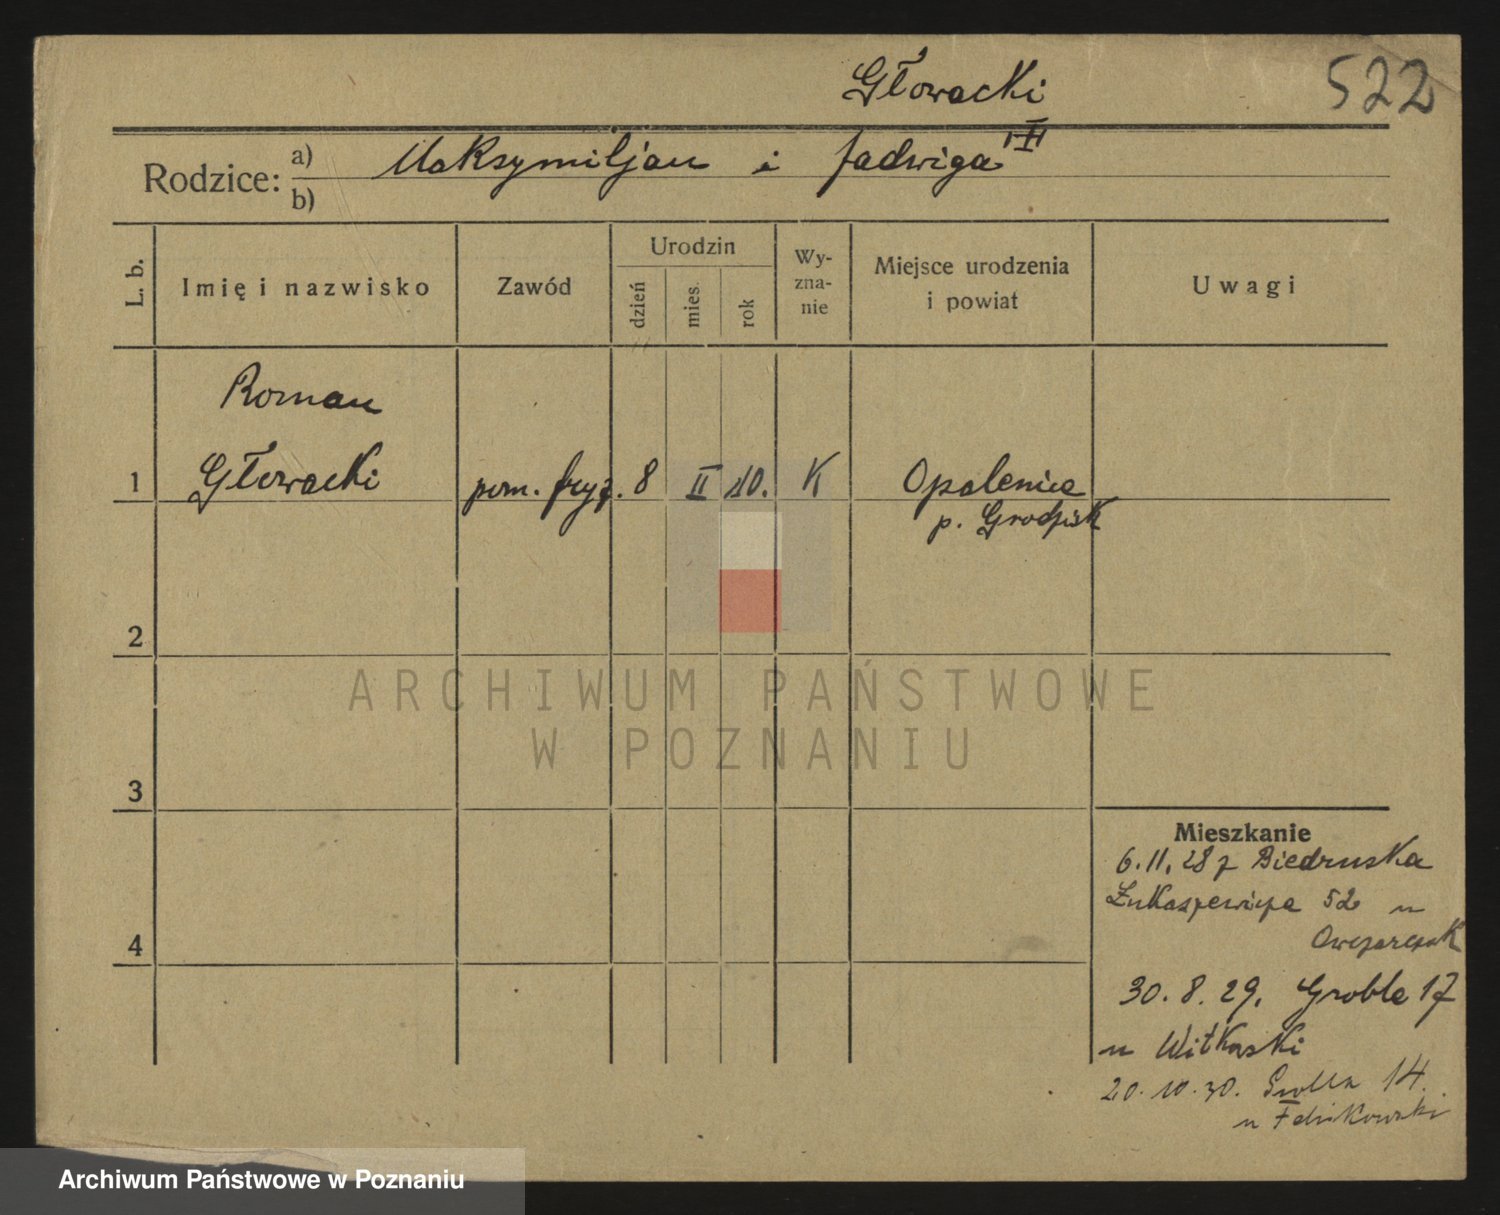 Głowacki
522
Rodzice: a) Maksymiljan i Jadwiga
b)
L. b.
Imię i nazwisko
Zawód
Urodzin
dzień
mies.
rok
Wy-
zna-
nie
Miejsce urodzenia
i powiat
Uwagi
Roman
1 Głowacki pom. fryz. 8 II 10. K Opalenica
p. Grodzisk
2
3
4
ARCHIWUM PAŃSTWOWE
W POZNANIU
Mieszkanie
6.11.28 z Biedruska
Łukaszewicza 52 u
Owczarczak
30.8.29. Groble 17
u Witkowski
20.10.30. Grobla 14.
u
Archiwum Państwowe w Poznaniu